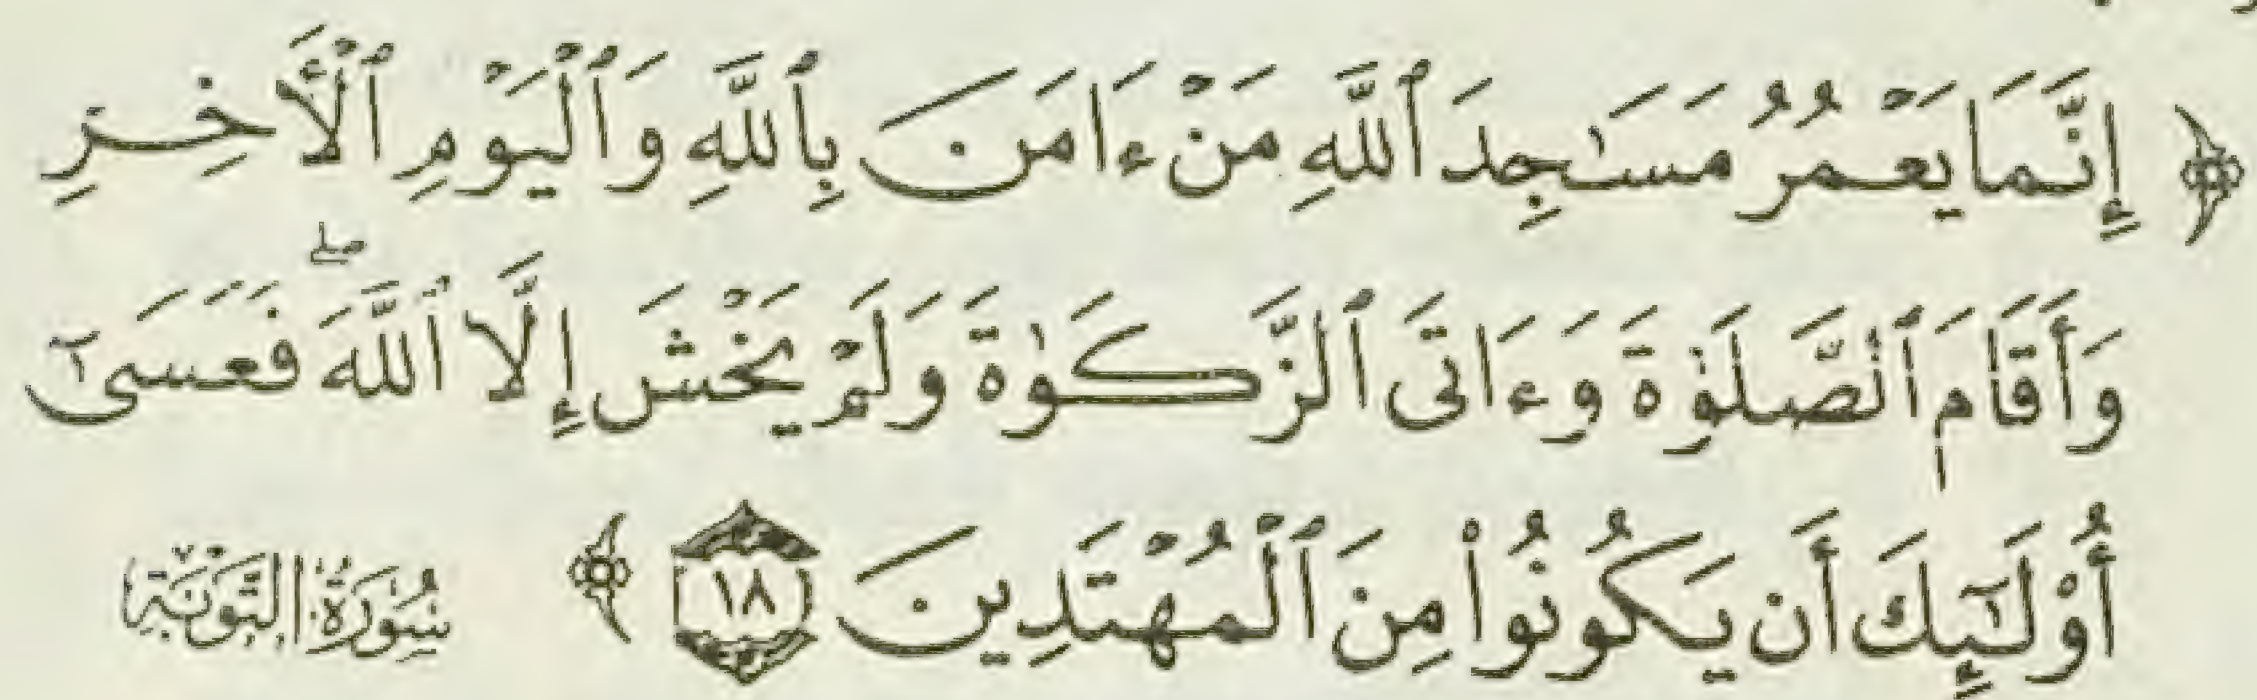 ﴿ إِنَّمَا يَعْمُرُ مَسَٰجِدَ ٱللَّهِ مَنْ ءَامَنَ بِٱللَّهِ وَٱلْيَوْمِ ٱلْأَخِرِ
وَأَقَامَ ٱلصَّلَوٰةَ وَءَاتَى ٱلزَّكَوٰةَ وَلَمْ يَخْشَ إِلَّا ٱللَّهَ ۖ فَعَسَىٰٓ
أُوْلَٰٓئِكَ أَن يَكُونُوا۟ مِنَ ٱلْمُهْتَدِينَ ١٨ ﴾ سُورَةُ التَّوْبَةِ